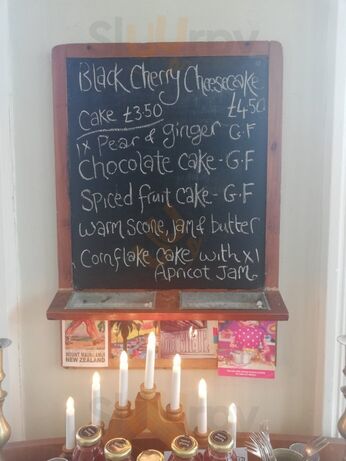 Sluurpy
Black Cherry Cheesecake
£4.50
Cake £3.50
1x Pear & ginger G.F
Chocolate cake - G.F
Spiced fruit cake - G.F
warm scone, jam & butter
Cornflake cake with x1
Apricot Jam
MOUNT MAUNGANUI
NEW ZEALAND